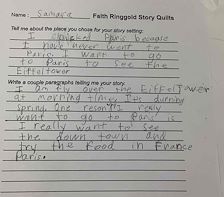 Name: Samara Faith Ringgold Story Quilts
Tell me about the place you chose for your story setting:
I chooked Paris because
I have never went to
Paris. I want to go
to Paris to see the
Eiffeltower
Write a couple paragraphs telling me your story.
I am fly over the EifFelTower
at morning time. It's durning
Spring. One reson I realy
want to go to Paris is
I really want to see
the down town and
try the food in
Paris.